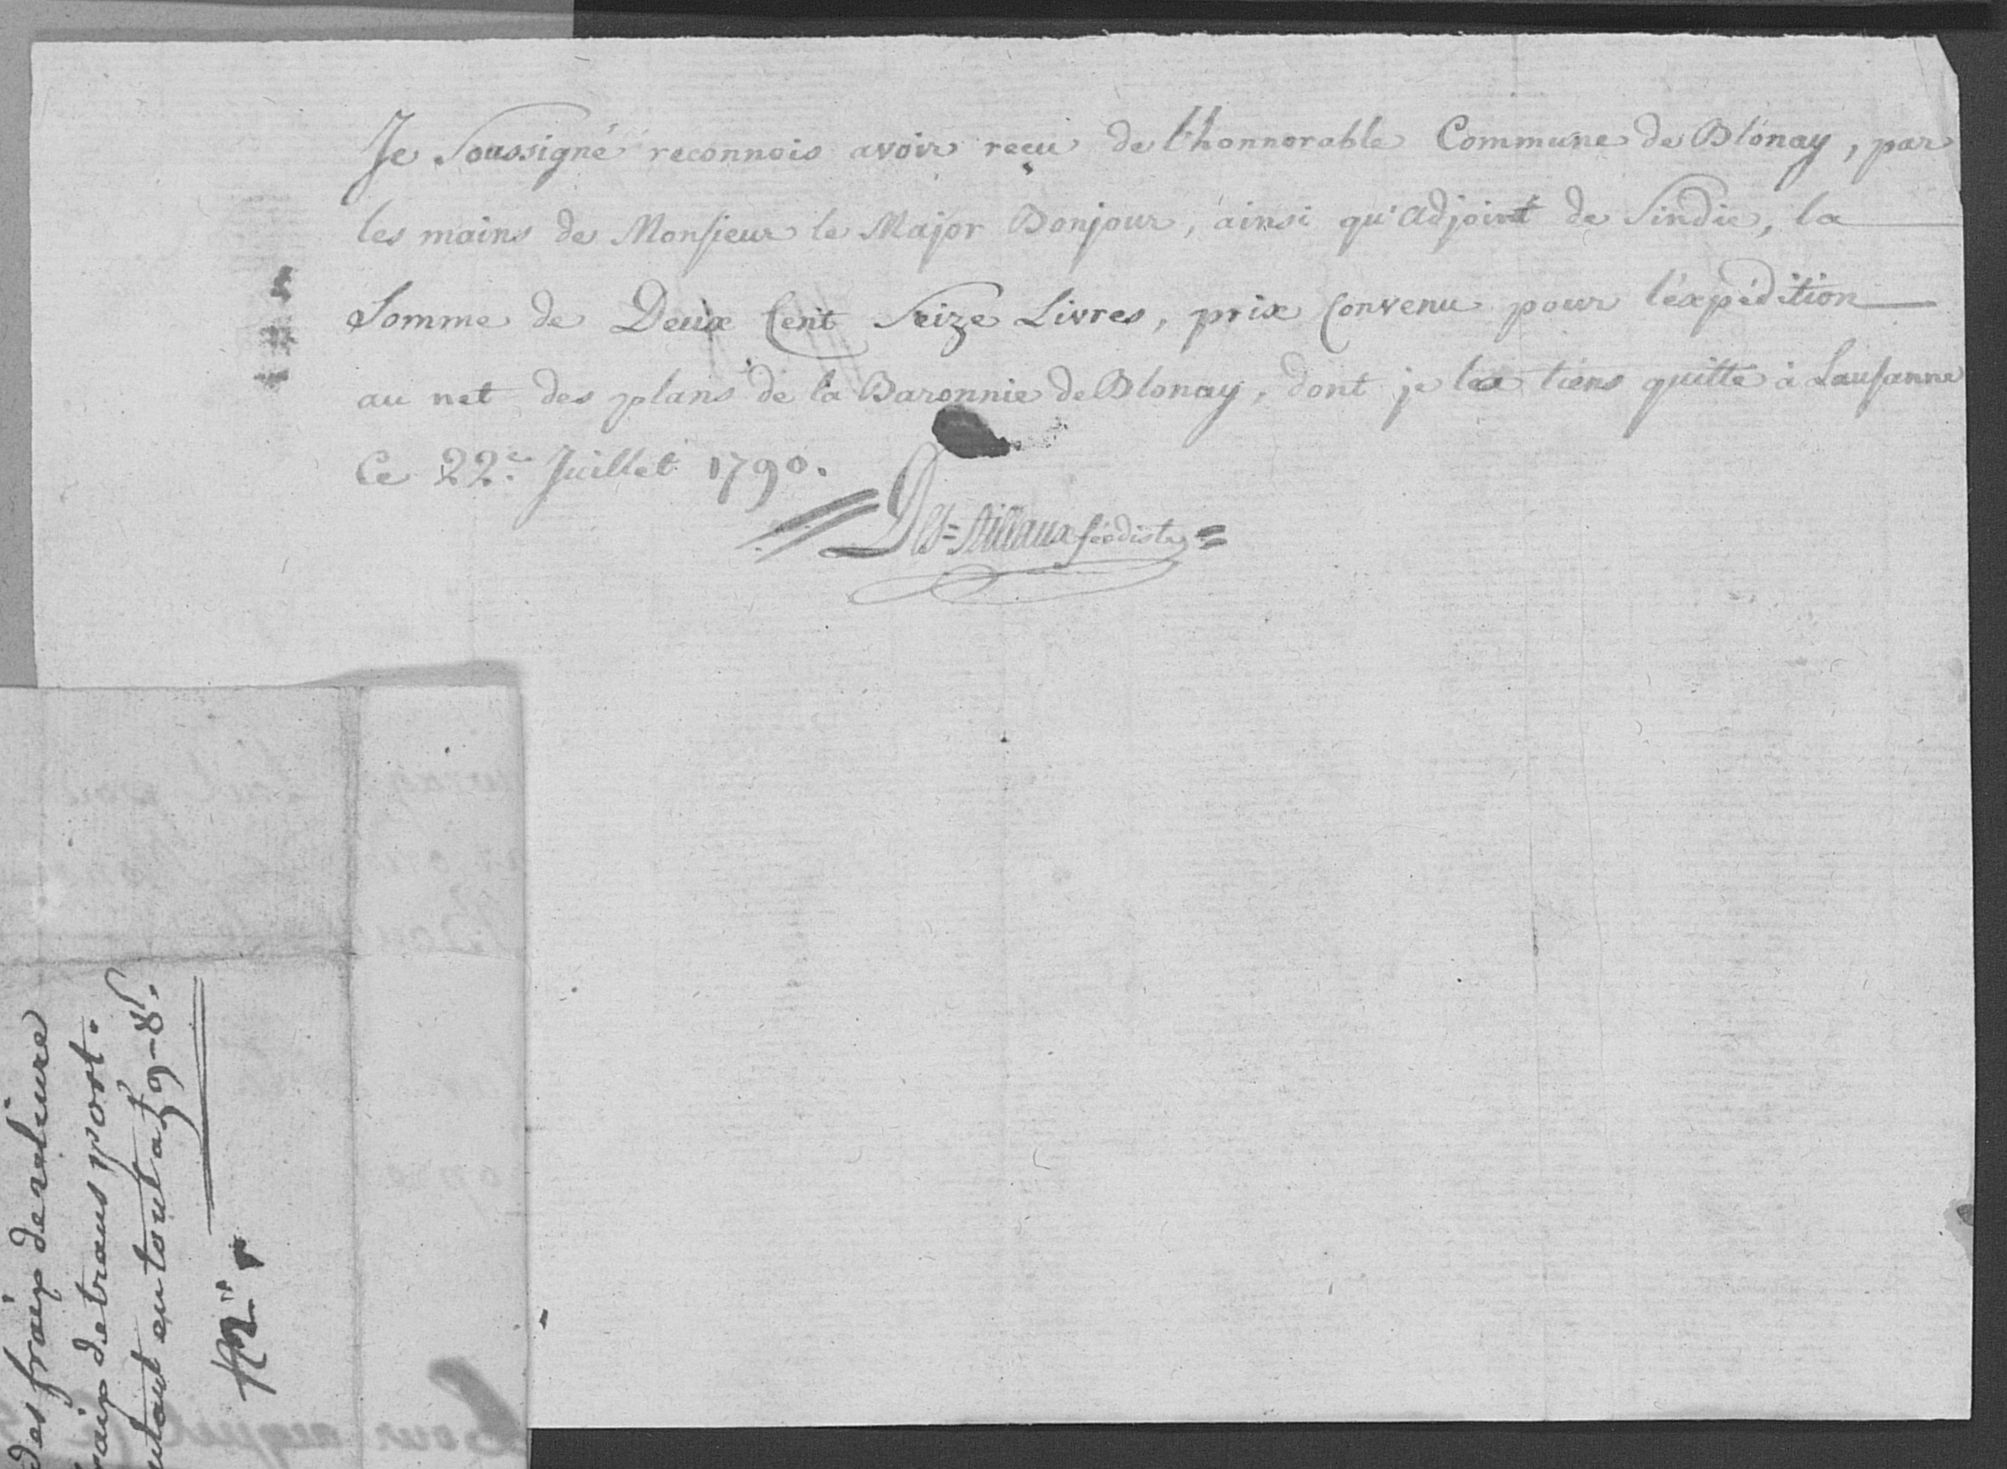 Je Soussigné reconnois avoir reçu de l'honnorable Commune de Blonay, par
les mains de Monsieur le Major Bonjour, ainsi qu'Adjoint de Sindic, la
Somme de Deux Cent Seize Livres, prix Convenu pour l'éxpédition
au net des plans de la Baronnie de Blonay, dont je les tiens quitte à Lausanne
Ce 22.e Juillet 1790.
féodiste
des fraix de relieure
raix de transport.
en tout a 9-8